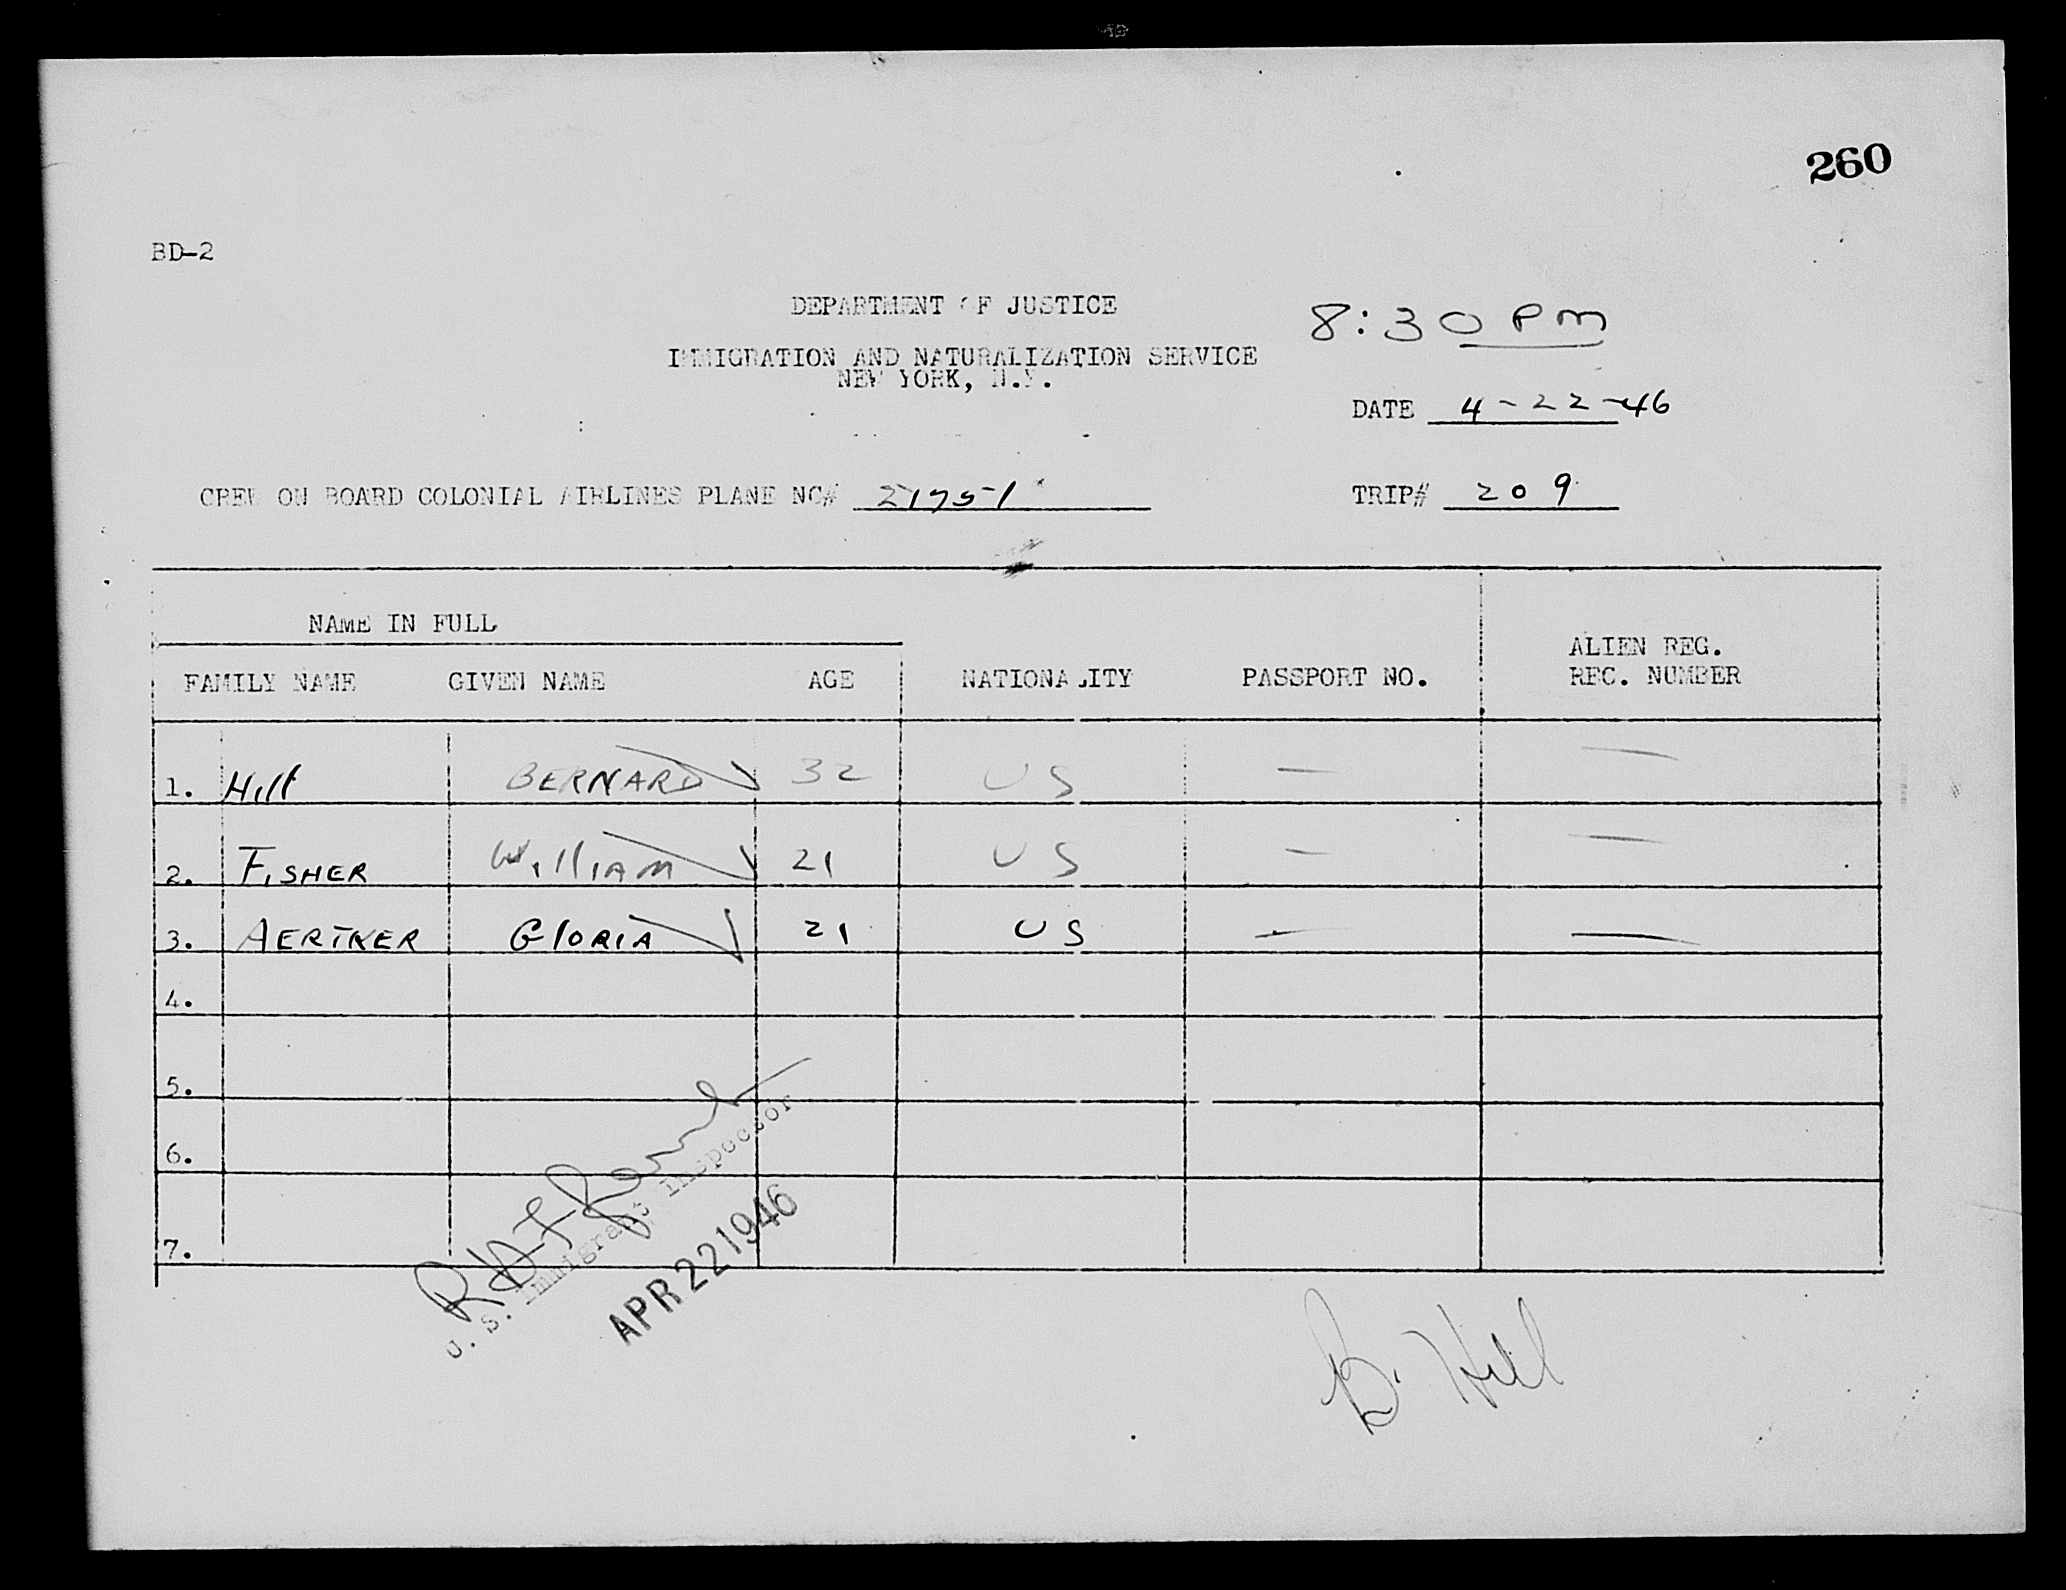 260
BD-2
DEPARTMENT OF JUSTICE
8:30 PM
IMMIGRATION AND NATURALIZATION SERVICE
NEW YORK, N.Y.
DATE 4-22-46
CREW ON BOARD COLONIAL AIRLINES PLANE NC# 21751
TRIP# 209
NAME IN FULL
FAMILY NAME GIVEN NAME AGE NATIONALITY PASSPORT NO. ALIEN REG. REC. NUMBER
1. Hill BERNARD 32 US — —
2. FISHER William 21 US — —
3. AERTKER GlORIA 21 US — —
4.
5.
6.
7.
U. S. Immigrant Inspector
APR 22 1946
B. Hill